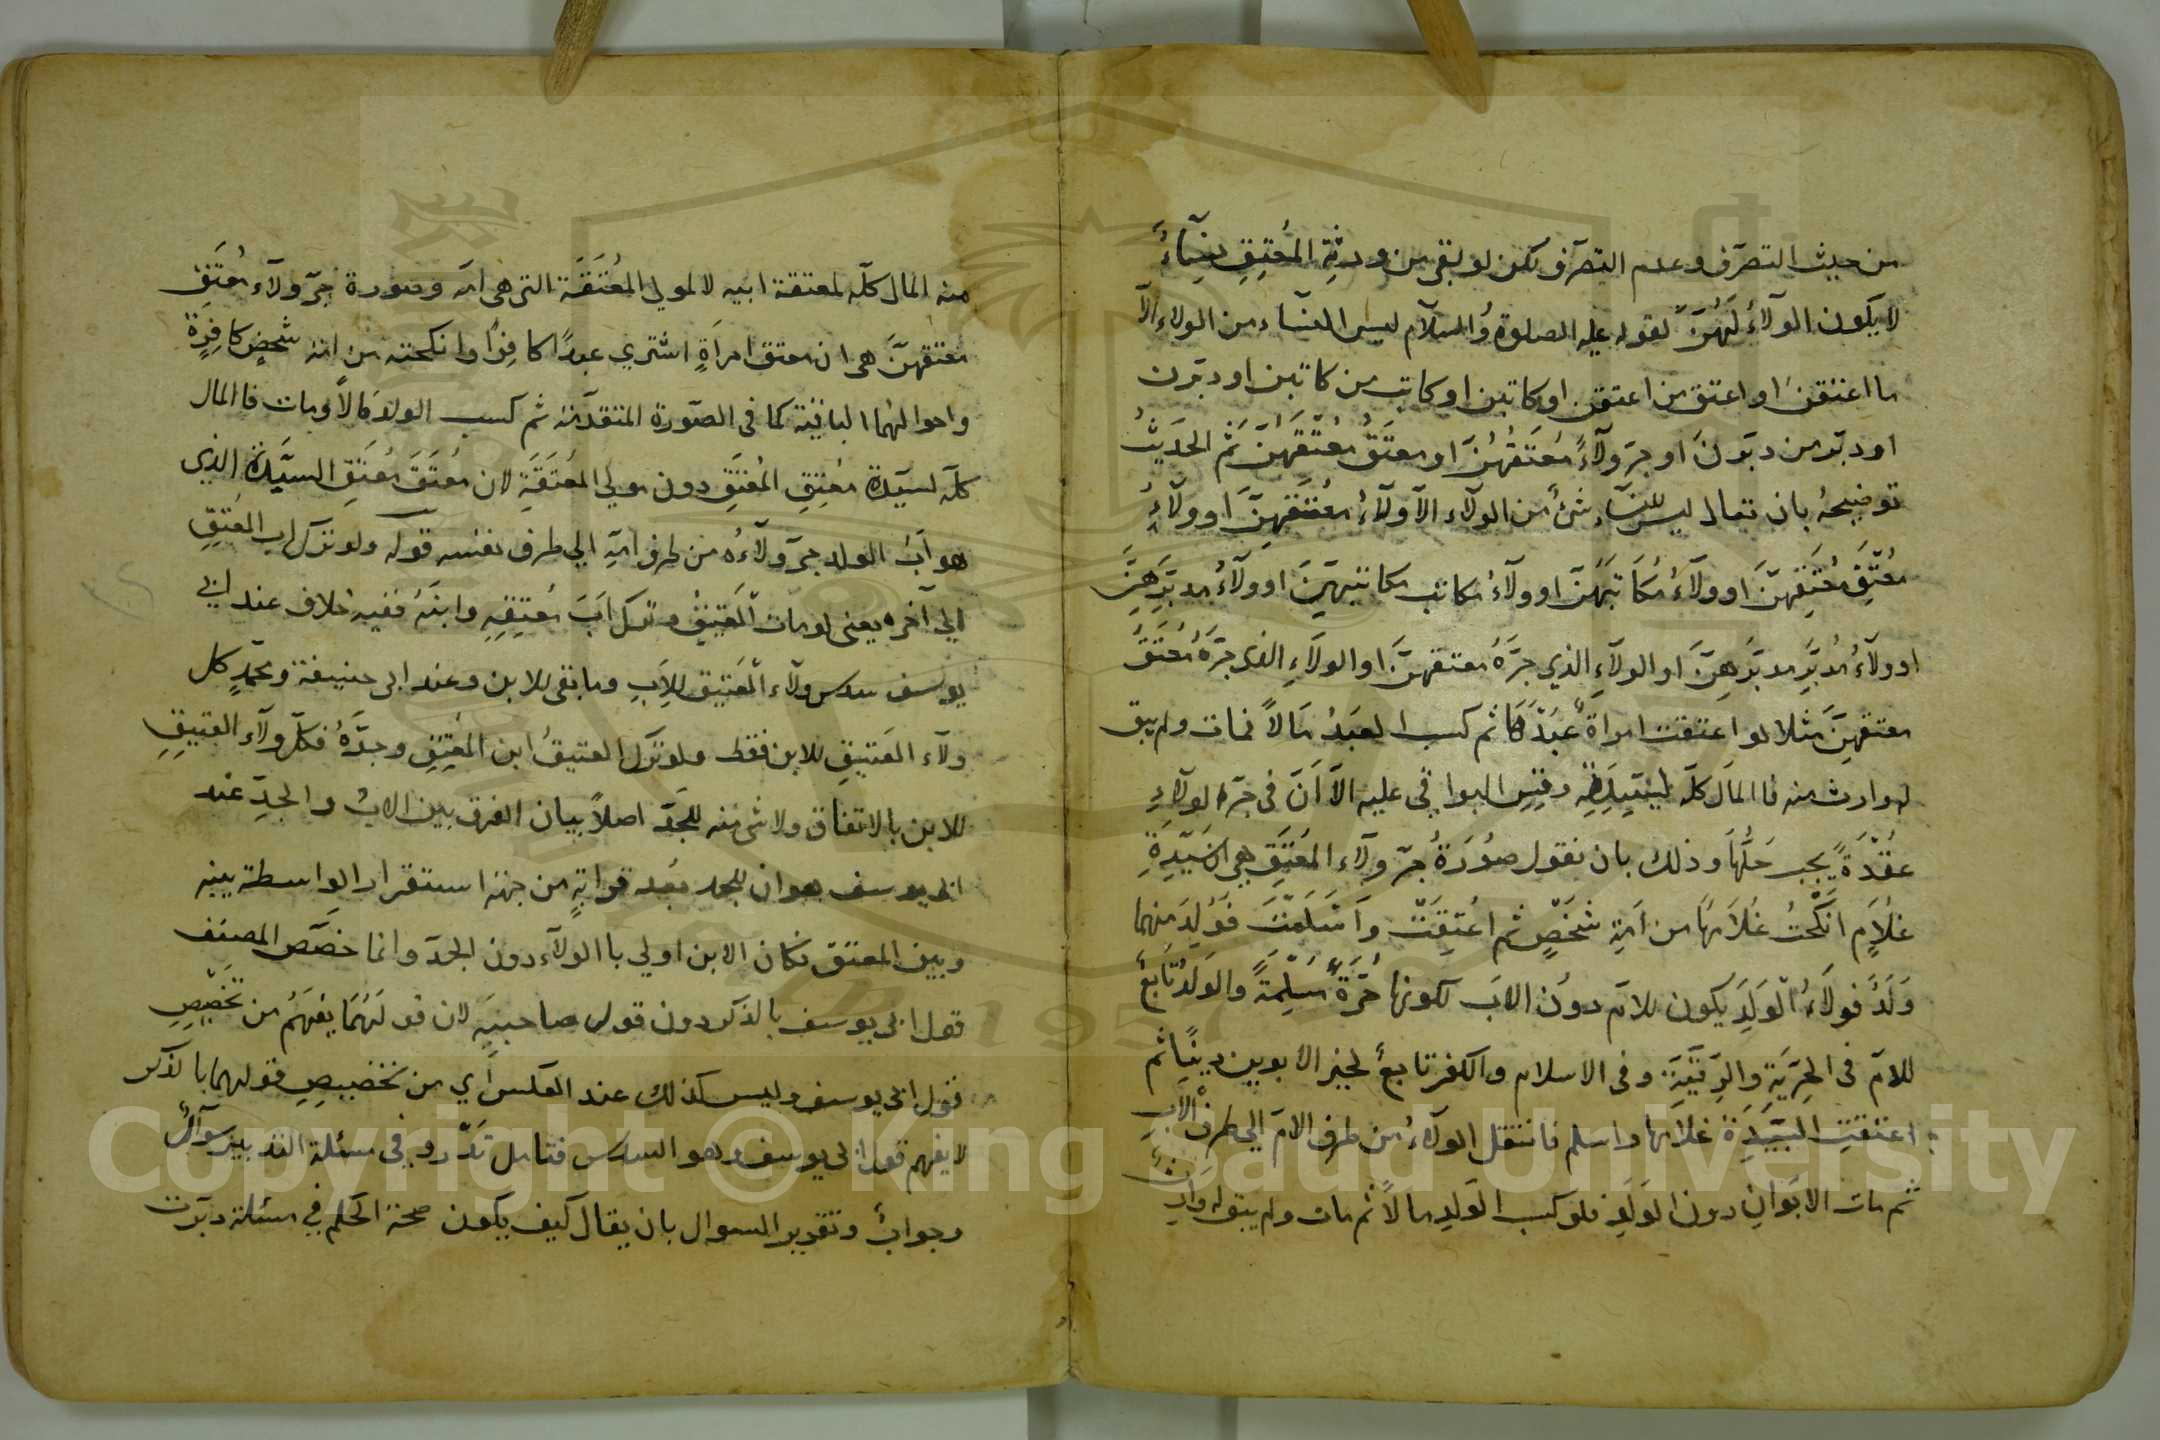 من حيث التصرّف وعدم التصرّف لكن لو بقى من ورثةِ المُعتِقِ نِسَاءً
لا يكون الولآءُ لَهُنَّ لقوله عليه الصلوة والسلام ليس للنساء من الولاء الّا
ما اعتقن او اعتق من اعتقن او كاتبن او كاتب من كاتبن او دبّرن
او دبّر من دبّرن او جرّ ولآءً مُعتَقُهُنَّ او معتَقُ مُعتَقِهِنَّ ثم الحديثُ
توضيحهُ بان تقال ليس للنساء شئ من الولآء الّا ولآءُ مُعتَقِهِنَّ او ولآءُ
مُعتَقِ مُعتَقِهِنَّ او ولآءُ مُكَاتَبِهِنَّ او ولآءُ مكاتب مكاتبهنّ او ولآءُ مدبّرِهِنَّ
او ولآءُ مُدبَّرِ مدبّرِهِنَّ او الولآءِ الذي جرّهُ معتقهنَّ او الولآءِ الذى جرّهُ مُعتَقُ
معتقهِنَّ مثلا لو اعتقت امراة عبدًا ثم كسب العبدُ مالاً فمات ولم يبق
له وارث منه فا المال كلّه لسيدته وقس البواقى عليه الّا انّ فى جرّ الولآءِ
عُقدَةً يجب حَلُّهَا وذلك بان نقول صُورَةُ جرّ ولآء المُعتَقِ هى ان سَيِّدةِ
غُلامٍ انكحتُ غُلامَهَا من اَمَةِ شخصٍ ثم اُعتِقَتْ واَسْلَمَتْ فَوُلِدَ منهما
وَلَدٌ فولآءُ الوَلَدِ يكون للامّ دون الاب لكونها حُرَّةً مُسْلِمَةً والوَلَدُ تابعٌ
للامّ فى الحرّيّةِ والرِّقّيّةِ وفى الاسلام والكفر تابعٌ لخير الابوين دينًا ثم
اعتقتِ السيّدةِ غلامَها واسلم فانتقل الولآءُ من طرف الامّ الى طرف الابِ
ثم مات الابوانِ دون الولَدِ فلو كسب الولدِ مالاً ثم مات ولم يبق له وارثٌ
منه المال كلّه لمعتقة ابيه لا لمولى المُعتَقَةِ التى هى امّه وصورة جرّ ولآء مُعتَقِ
معتقهنّ هى ان معتق امرَاةٍ اشترى عبدًا كافرًا وانكحته من امة شخصٍ كافرةٍ
واحوالهما الباقية كما فى الصّورة المتقدّمة ثم كسب الولد مالاً ومات فا المال
كلّه لسيّدة مُعتِقِ المُعتَقِ دون مولى المُعتَقَةِ لان مُعتَقَ مُعتَقِ السيّدة الذي
هو اَبُ الولد جرّ ولآءهُ من طرف امّهِ الى طرف نفسه قوله ولو ترك اب المُعتِقِ
الى آخره يعنى لو مات العَتيقُ وترك اَبَ مُعتِقِهِ وابنَهُ ففيه خلاف عند ابى
يوسف سدس ولآء العَتيق للاَبِ وما بقى للابن وعند ابى حنيفة ومحمّدٍ كل
ولآء العَتيقِ للابن فقط ولو ترك العتيقُ ابن المُعتِقِ وجدّهُ فكلّ ولآء العتيقِ
للابن بالاتفاق ولا شئ منه للجدّ اصلاً بيان الفرق بين الابُ والجدّ عند
ابى يوسف هو ان للجد بُعد قرابةٍ من جهة استقرار الواسطة بينه
وبين المعتق فكان الابن اولى با الولآء دون الجدّ وانما خصّص المصنف
قول ابى يوسف بالذكر دون قول صاحبيهِ لان قولَهُمَا يُفهَمُ من تخصيصِ
قول ابى يوسف وليس كذلك عند العكس اي من تخصيصِ قولهما بالذكر
لا يفهم قول ابى يوسف وهو السدس فتامل تدّر وفى مسئلة التدبير سوآلٌ
وجوابٌ وتقدير السوال بان يقال كيف يكون صحة الحكم فى مسئلة دبّرت